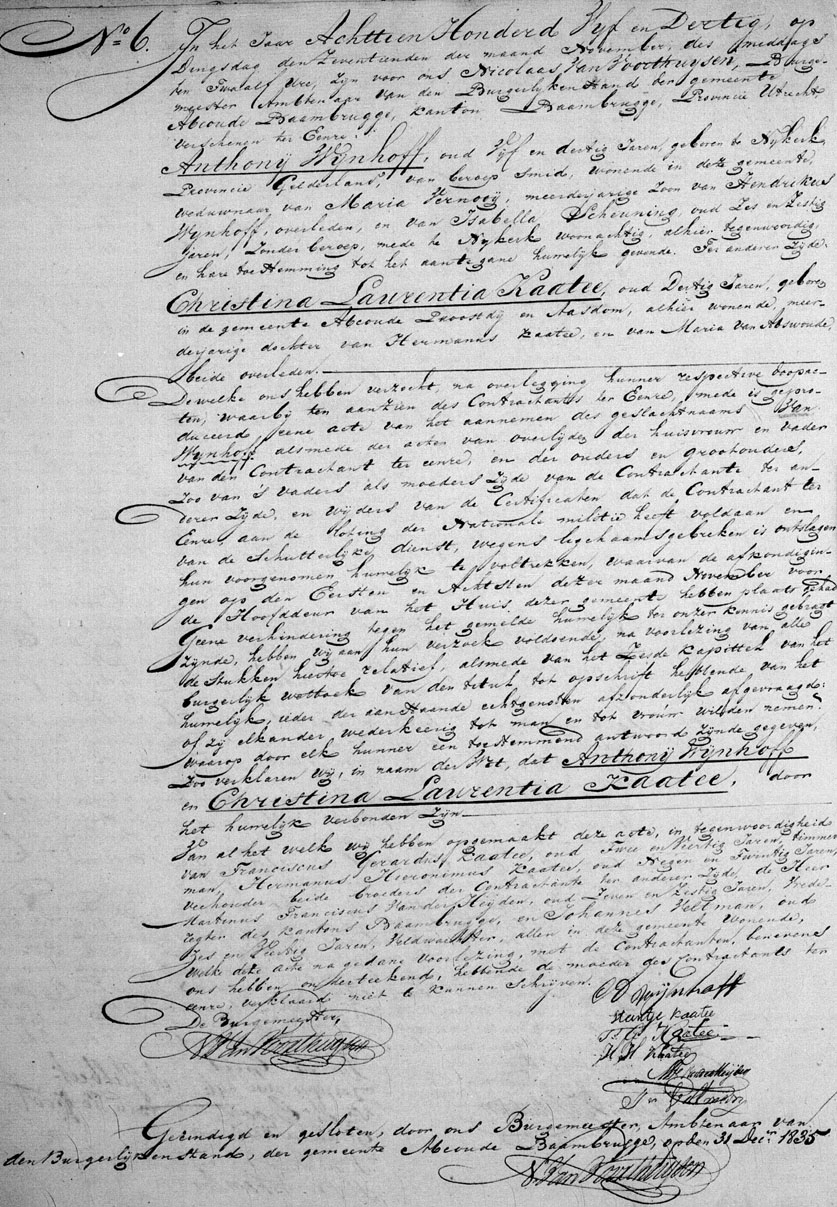 No 6. In het Jaar Achttien Honderd Vijf en Dertig, op
Dingsdag den Zeventienden der maand November, des smiddags
ten Twaalf Ure, Zijn voor ons Nicolaas Van Voorthuijsen, Burge-
meester Ambtenaar van den Burgerlijken Stand der gemeente
Abcoude Baambrugge, kanton Baambrugge, Provincie Utrecht
verschenen ter Eenre:
Anthonij Wijnhoff, oud Vijf en dertig Jaren, geboren te Nijkerk,
Provincie Gelderland, van beroep Smid, wonende in deze gemeente,
weduwnaar van Maria Vernooij, meerderjarige Zoon van Hendrikus
Wijnhoff, overleden, en van Isabella Scheuning, oud Zes en Zestig
Jaren, Zonder beroep, mede te Nijkerk woonachtig, alhier tegenwoordig,
en hare toestemming tot het aantegane huwelijk gevende. Ter anderer Zijde
Christina Laurentia Kaatee, oud Dertig Jaren, geboren
in de gemeente Abcoude Proostdij en Aasdom, alhier wonende, meer-
derjarige dochter van Hermanus Kaatee, en van Maria van Abswoude,
beide overleden.
Dewelke ons hebben verzocht, na overlegging hunner respective doopac-
ten, waarbij ten aanzien des Contractants ter Eenre, mede is gepro-
duceerd eene acte van het aannemen des geslachtnaams Van
Wijnhoff alsmede der acten van overlijden der huisvrouw en vader
van den Contractant ter eenre, en der ouders en grootouders,
Zoo van 's vaders als moeders Zijde, van de Contractante ter an-
derer Zijde, en wijders van de Certificaten dat de Contractant ter
Eenre aan de Loting der Nationale militie heeft voldaan en
van de Schutterlijke dienst, wegens ligchaamsgebreken is ontslagen
hun voorgenomen huwelijk te voltrekken, waarvan de afkondigin-
gen op den Eersten en Achtsten dezer maand November voor
de Hoofddeur van het Huis dezer gemeente hebben plaats gehad
Geene verhindering tegen het gemelde huwelijk ter onzer kennis gebragt
Zijnde, hebben wij aan hun verzoek voldoende, na voorlezing van alle
de stukken hiertoe relatief, alsmede van het Zesde kapittel van het
burgerlijk wetboek van den titul tot opschrift hebbende van het
huwelijk, ieder der aanstaande echtgenoten afzonderlijk afgevraagd:
of Zij elkander wederkeerig tot man en tot vrouw wilden nemen:
waarop door elk hunner een toestemmend antwoord Zijnde gegeven,
Zoo verklaren wij, in naam der Wet, dat Anthonij Wijnhoff
en Christina Laurentia Kaatee, door
het huwelijk verbonden Zijn
Van al het welk wij hebben opgemaakt deze acte, in tegenwoordigheid
van Franciscus Gerardus Kaatee, oud Twee en Veertig Jaren, timmer
man, Hermanus Hieronimus Kaatee, oud Negen en Twintig Jaren,
veehouder beide broeders der Contractante ter anderer Zijde, de Heer
Martinus Franciscus Van der Heijden, oud Zeven en Zestig Jaren, Vrede-
regter des kantons Baambrugge, en Johannes Veltman, oud
Zes en Veertig Jaren, Veldwachter, allen in deze gemeente wonende,
welke deze acte na gedane voorlezing, met de Contractanten, benevens
ons hebben onderteekend, hebbende de moeder des Contractants ter
eenre, verklaard niet te kunnen schrijven.
De Burgemeester
N. Van Voorthuijsen
A Weijnhoff
Kaatee
Kaatee
H H Kaatee
Veltman
Geeindigd en gesloten, door ons Burgemeester, Ambtenaar van
den Burgerlijken stand, der gemeente Abcoude Baambrugge, op den 31 Decr. 1835
N. Van Voorthuijsen